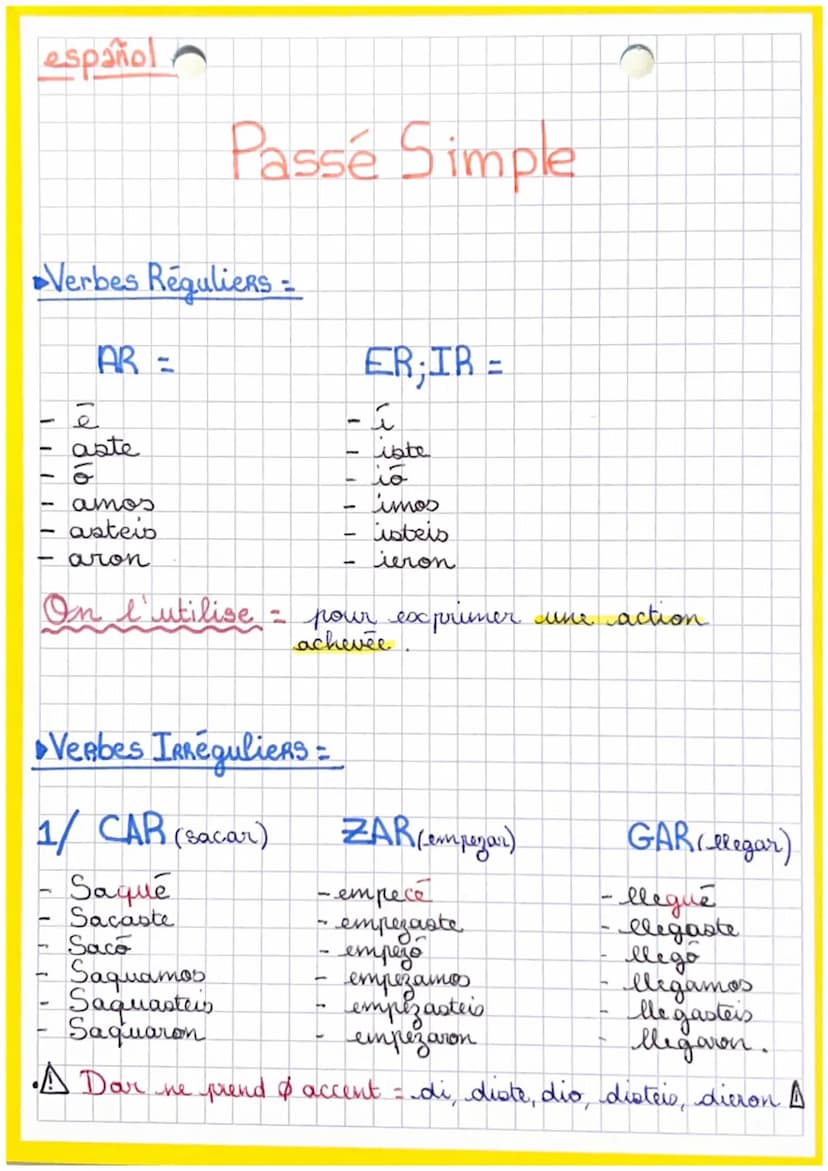 español
Passé Simple
▶Verbes Réguliers =
AR = ER; IR =
- é - í
- aste - iste
- ó - ió
- amos - imos
- asteis - isteis
- aron - ieron
On l'utilise = pour exprimer une action
achevée.
▶Verbes Irréguliers =
1/ CAR (sacar) ZAR (empezar) GAR (llegar)
- Saqué - empecé - llegué
- Sacaste - empezaste - llegaste
- Sacó - empezó - llegó
- Saquamos - empezamos - llegamos
- Saquasteis - empezasteis - llegasteis
- Saquaron - empezaron - llegaron.
.⚠ Dar ne prend ø accent = di, diste, dio, disteis, dieron ⚠